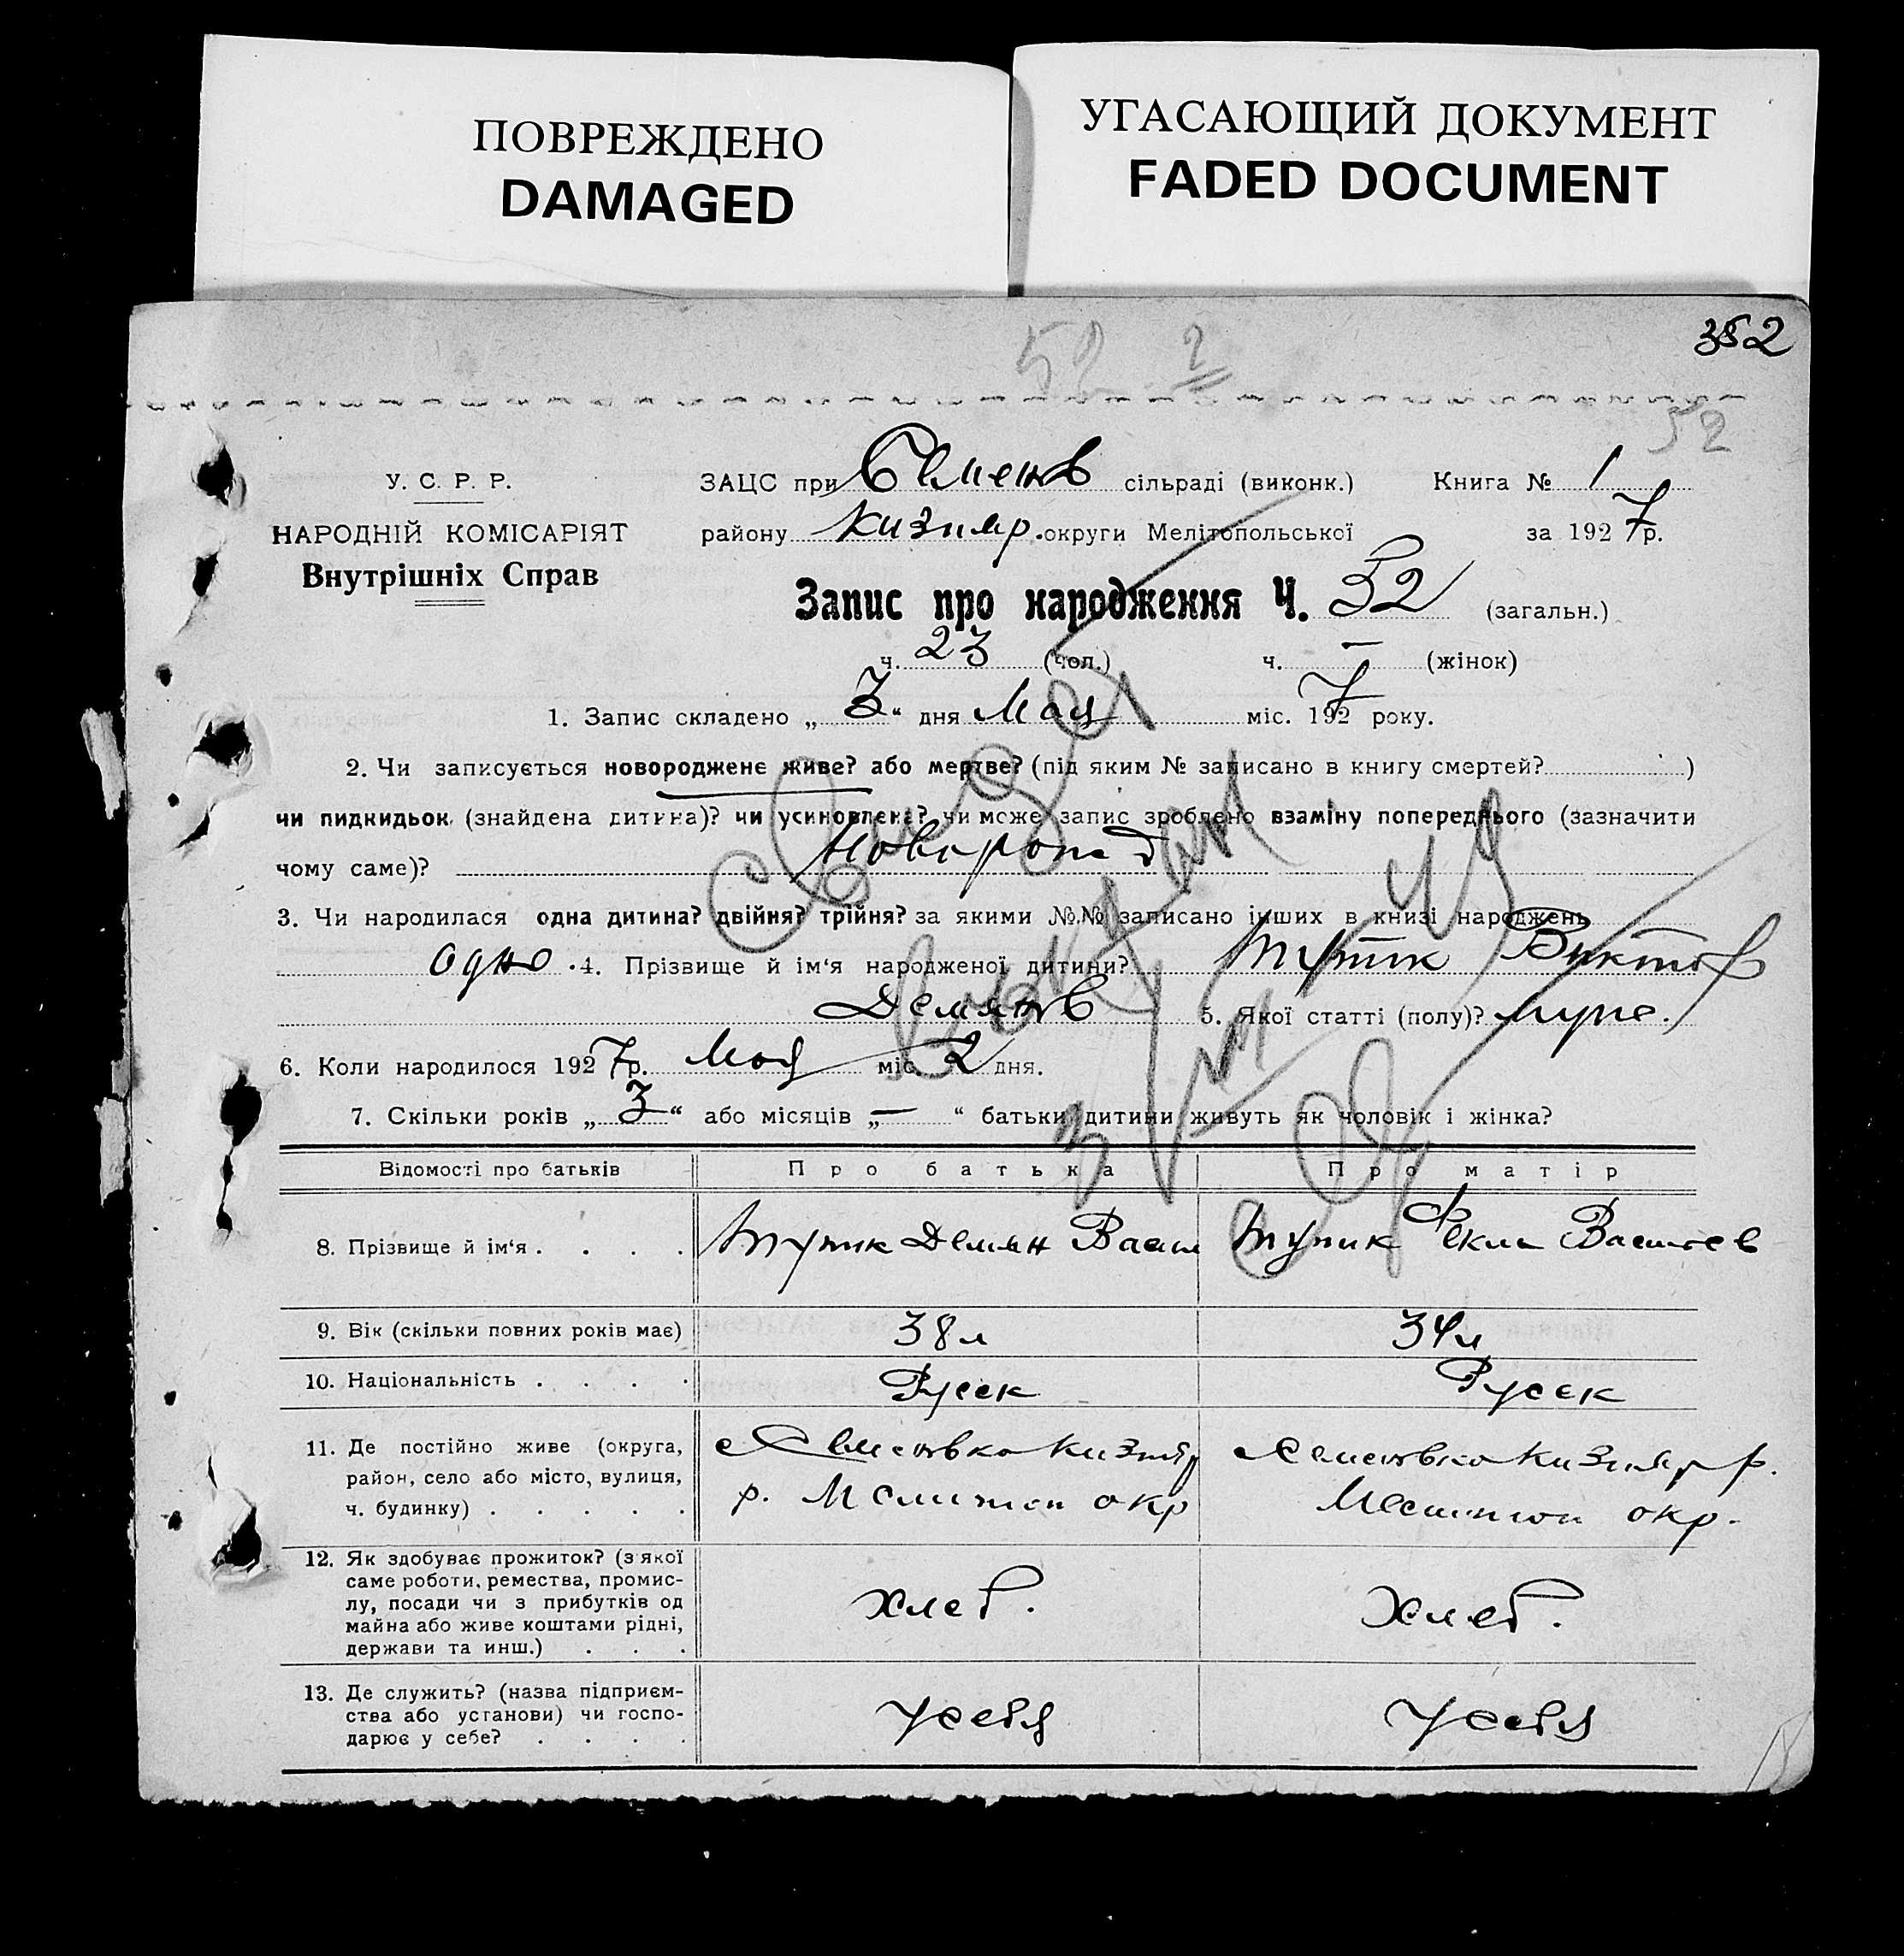 ПОВРЕЖДЕНО
DAMAGED
УГАСАЮЩИЙ ДОКУМЕНТ
FADED DOCUMENT
352
52 2
52
У. С. Р. Р.
НАРОДНІЙ КОМІСАРІЯТ
Внутрішніх Справ
ЗАЦС при Семенов сільраді (виконк.) Книга № 1
району Кизияр. округи Мелітопольської за 1927 р.
Запис про народження Ч. 52 (загальн.)
ч. 23 (чол.) ч. — (жінок)
1. Запис складено „ 3 “ дня Мая міс. 1927 року.
2. Чи записується новороджене живе? або мертве? (під яким № записано в книгу смертей? )
чи пидкидьок (знайдена дитина)? чи усиновлена? чи може запис зроблено взаміну попереднього (зазначити
чому саме)? Новорожд
3. Чи народилася одна дитина? двійня? трійня? за якими №№ записано інших в книзі народжень
одно . 4. Прізвище й ім‘я народженої дитини? Тупик Виктор
Демянов 5. Якої статті (полу)? муже.
6. Коли народилося 1927 р. Мая міс. 2 дня.
7. Скільки років „ 3 “ або місяців „ — “ батьки дитини живуть як чоловік і жінка?
Відомості про батьків Про батька Про матір
8. Прізвище й ім‘я . . . . Тупик Демян Васил Тупик Фекла Васильев
9. Вік (скільки повних років має) 38 л 34 л
10. Національність . . . . Русск Русск
11. Де постійно живе (округа, район, село або місто, вулиця, ч. будинку) . . . . .
с Семеновка Кизияр
р. Мелитоп окр
с Семеновка Кизияр р.
Мелитоп окр.
12. Як здобуває прожиток? (з якої
саме роботи, ремества, промис-
лу, посади чи з прибутків од
майна або живе коштами рідні,
держави та инш.) . . .
Хлеб.
Хлеб.
13. Де служить? (назва підприєм-
ства або установи) чи госпо-
дарює у себе? . . . .
У себя
У себя